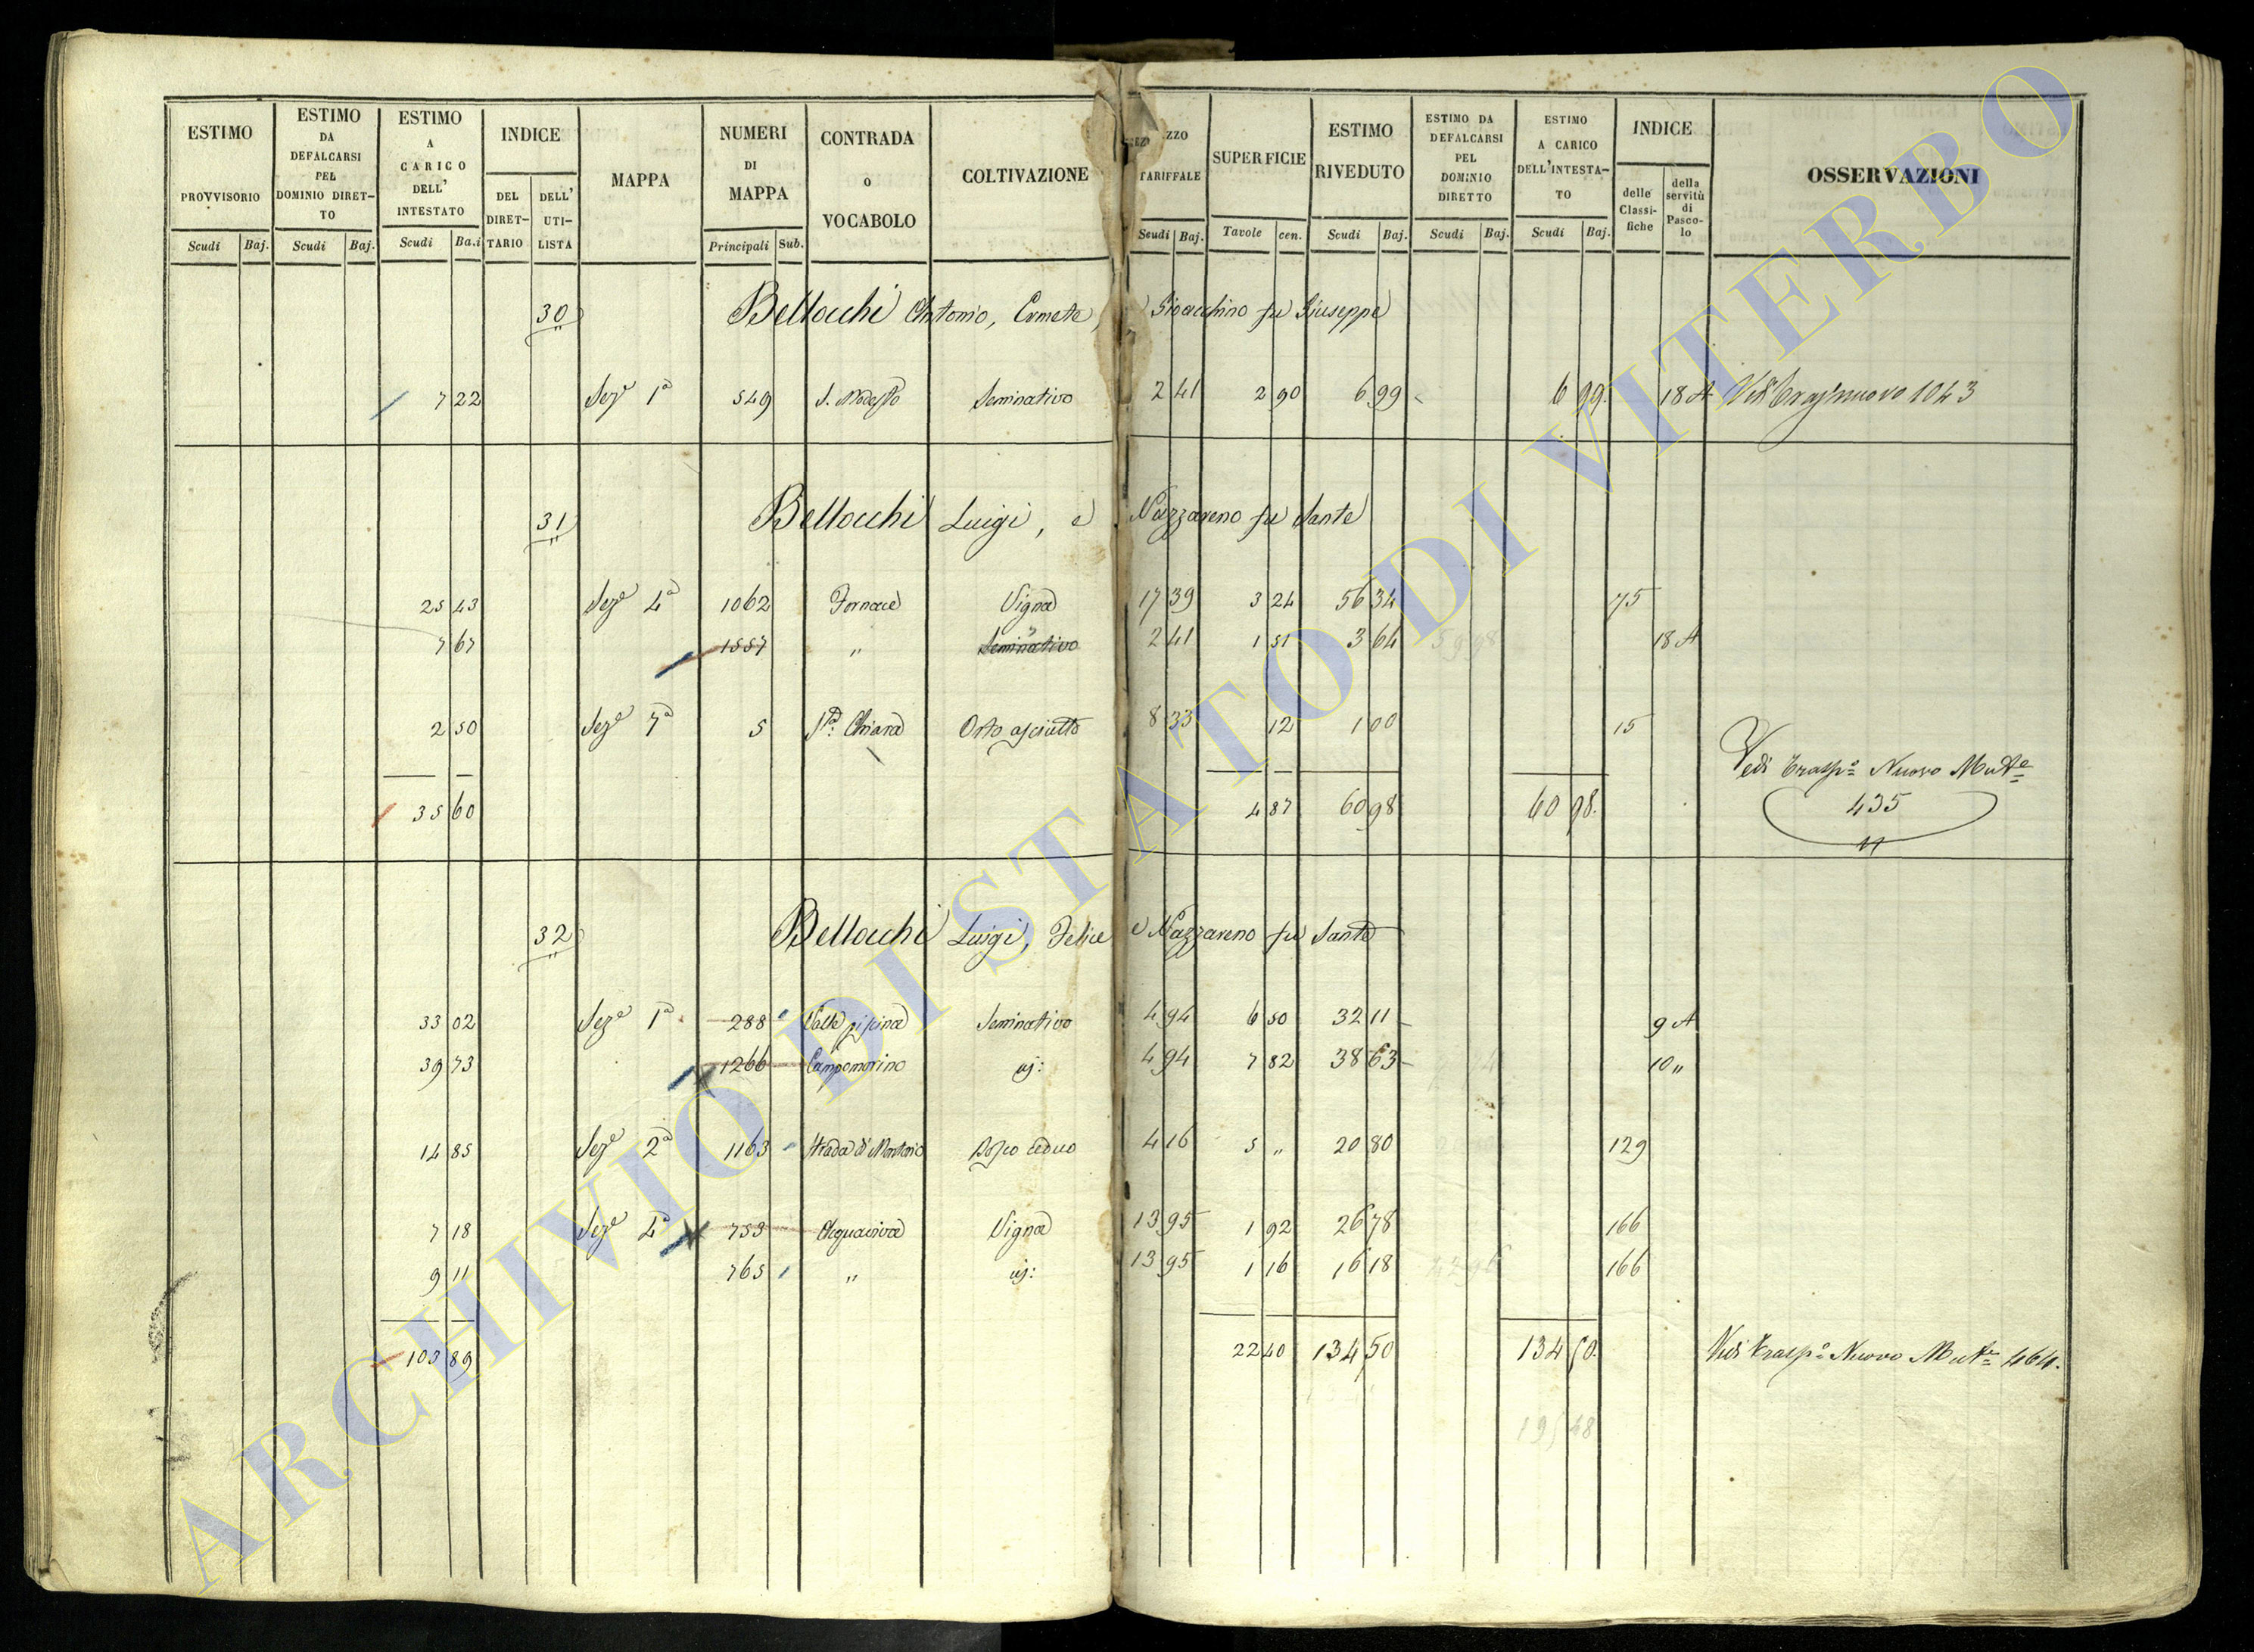 ESTIMO PROVVISORIO Scudi Baj. ESTIMO DA DEFALCARSI PEL DOMINIO DIRET-TO Scudi Baj. ESTIMO A CARICO DELL' INTESTATO Scudi Ba.i INDICE DEL DIRET-TARIO DELL' UTI-LISTA MAPPA NUMERI DI MAPPA Principali Sub. CONTRADA O VOCABOLO COLTIVAZIONE ZZO TARIFFALE Scudi Baj. SUPERFICIE Tavole cen. ESTIMO RIVEDUTO Scudi Baj. ESTIMO DA DEFALCARSI PEL DOMINIO DIRETTO Scudi Baj. ESTIMO A CARICO DELL'INTESTA-TO Scudi Baj. INDICE delle Classi-fiche della servitù di Pasco-lo OSSERVAZIONI
30 Bellocchi Antonio, Ermete, e Gioacchino fu Giuseppe
7 22 Seze 1a 549 S. Modesto Seminativo 2 41 2 90 6 99 6 99. 18 A Vedi Trasp nuovo 1043
31 Bellocchi Luigi, e Nazzareno fu Sante
25 43 Seze 4a 1062 Fornace Vigna 17 39 3 24 56 34 75
7 67 1557 " Seminativo 2 41 1 51 3 64 18 A
2 50 Seze 7a 5 Sta: Chiara Orto asciutto 8 33 12 1 00 15
Vedi Traspo Nuovo Mute
35 60 4 87 60 98 60 98. 435
32 Bellocchi Luigi, Felice e Nazzareno fu Sante
33 02 Seze 1a 288 Valle piscina Seminativo 4 94 6 50 32 11 9 A
39 73 1266 Campomorino 4 94 7 82 38 63 10 "
14 85 Seze 2a 1163 Strada di Montorio Bosco ceduo 4 16 5 " 20 80 129
7 18 Seze 4a 753 Acquaviva Vigna 13 95 1 92 26 78 166
9 11 765 " 13 95 1 16 16 18 166
103 89 22 40 134 50 134 50. Vedi Traspo Nuovo Mute 464.
ARCHIVIO DI STATO DI VITERBO